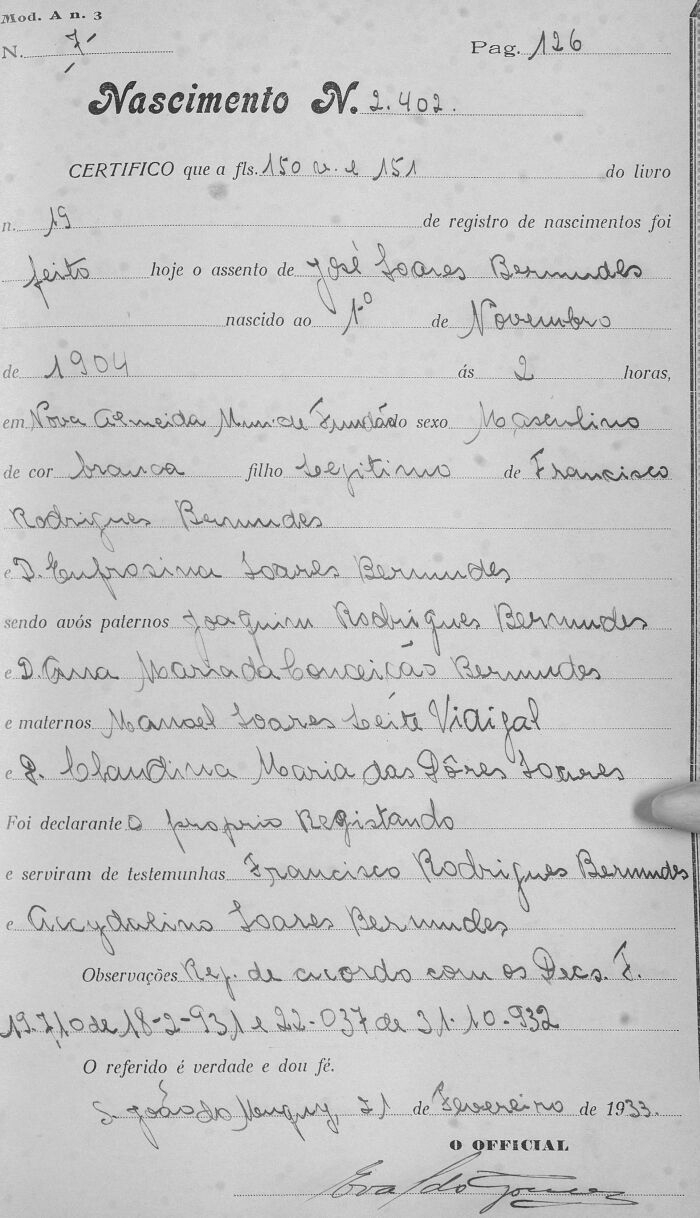 Mod. A n. 3
N. 7 Pag. 126
Nascimento N. 2.402.
CERTIFICO que a fls. 150 v. e 151 do livro
n. 19 de registro de nascimentos foi
feito hoje o assento de José Soares Bermudes
nascido ao 1º de Novembro
de 1904 ás 2 horas,
em Nova Almeida Mun. de Fundão do sexo Masculino
de cor branca filho Legitimo de Francisco
Rodrigues Bermudes
e D. Eufrosina Soares Bermudes
sendo avós paternos Joaquim Rodrigues Bermudes
e D. Anna Maria da Conceição Bermudes
e maternos Manoel Soares Leite Vidigal
e D. Claudina Maria das Dôres Soares
Foi declarante O proprio Registando
e serviram de testemunhas Francisco Rodrigues Bermudes
e Accydalino Soares Bermudes
Observações Reg. de acordo com os Decs. F.
19.710 de 18-2-931 e 22-037 de 31-10-932
O referido é verdade e dou fé.
S. João do Muquy, 21 de Fevereiro de 1933.
O OFFICIAL